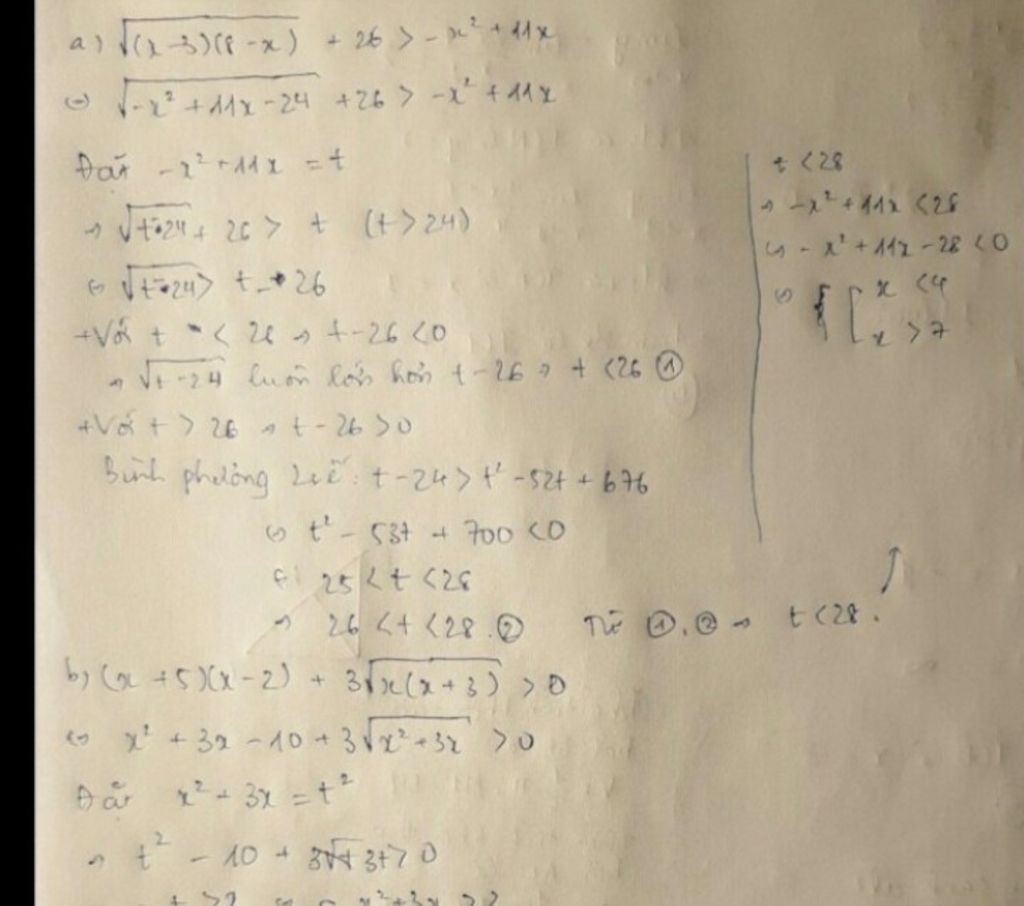 a) √((x-3)(8-x)) + 26 > -x² + 11x
⇔ √(-x² + 11x - 24) + 26 > -x² + 11x
Đặt -x² + 11x = t
⇒ √(t-24) + 26 > t (t > 24)
⇔ √(t-24) > t - 26
+Với t < 26 ⇒ t - 26 < 0
⇒ √(t-24) luôn lớn hơn t - 26 ⇒ t < 26 ①
+Với t > 26 ⇒ t - 26 > 0
Bình phương 2 vế: t - 24 > t² - 52t + 676
⇔ t² - 53t + 700 < 0
⇔ 25 < t < 28
⇒ 26 < t < 28. ② Từ ①, ② ⇒ t < 28.
t < 28
⇒ -x² + 11x < 28
⇔ -x² + 11x - 28 < 0
⇔ [ x < 4
x > 7
b) (x + 5)(x - 2) + 3√(x(x + 3)) > 0
⇔ x² + 3x - 10 + 3√(x² + 3x) > 0
Đặt x² + 3x = t²
⇒ t² - 10 + 3t > 0
t > 2 ⇔ x² + 3x > 2